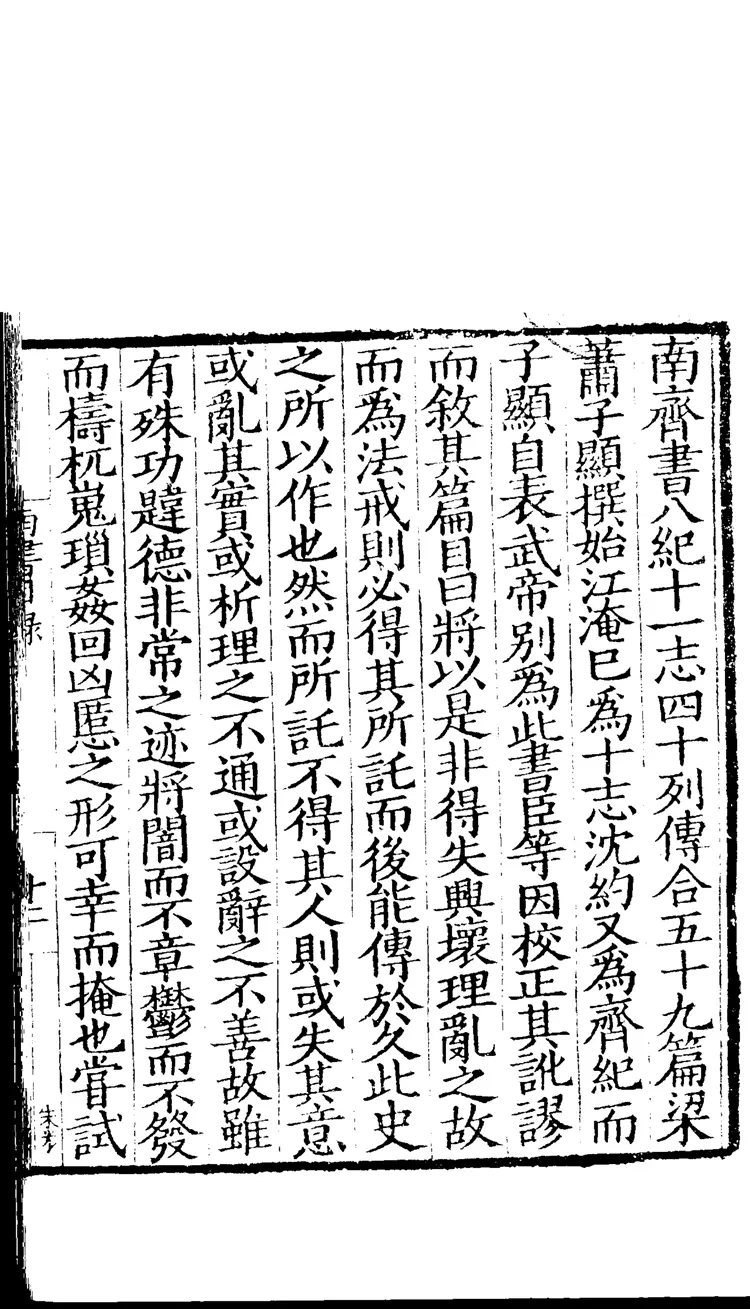 南齊書八紀十一志四十列傳合五十九篇梁
蕭子顯撰始江淹已爲十志沈約又爲齊紀而
子顯自表武帝別爲此書臣等因校正其訛謬
而敘其篇目曰將以是非得失興壞理亂之故
而爲法戒則必得其所託而後能傳於久此史
之所以作也然而所託不得其人則或失其意
或亂其實或析理之不通或設辭之不善故雖
有殊功韙德非常之迹將闇而不章鬱而不發
而檮杌嵬瑣姦回凶慝之形可幸而掩也嘗試
南書目錄
十二